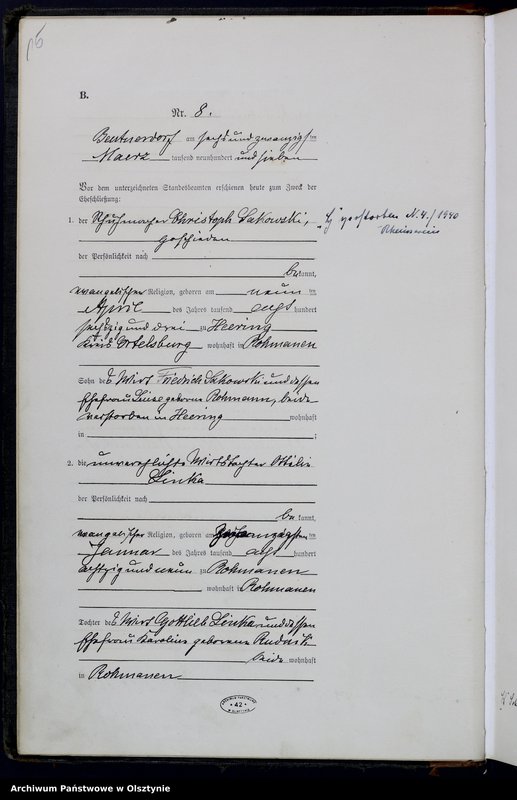 B.
Nr. 8.
Beutnerdorf am sechsundzwanzigsten
Maerz tausend neunhundert und sieben
Vor dem unterzeichneten Standesbeamten erschienen heute zum Zweck der
Eheschließung:
1. der Schuhmacher Christoph Sakowski,
geschieden
der Persönlichkeit nach
bekannt,
evangelischer Religion, geboren am neunten
April des Jahres tausend achthundert
sechzig und drei zu Heering
Kreis Ortelsburg wohnhaft in Rohmanen
Sohn des Wirt Friedrich Sakowski und dessen
Ehefrau Luise geborene Rohmann, beide
verstorben in Heering wohnhaft
in ;
verstorben N. 4./1940
2. die unverehelichte Wirtstochter Ottilie
Linka
der Persönlichkeit nach
bekannt,
evangelischer Religion, geboren am
Januar des Jahres tausend achthundert
achtzig und neun zu Rohmanen
wohnhaft in Rohmanen
Tochter des Wirt Gottlieb Linka und dessen
Ehefrau Karoline geborene Rudnik
beide wohnhaft
in Rohmanen
42
Archiwum Państwowe w Olsztynie